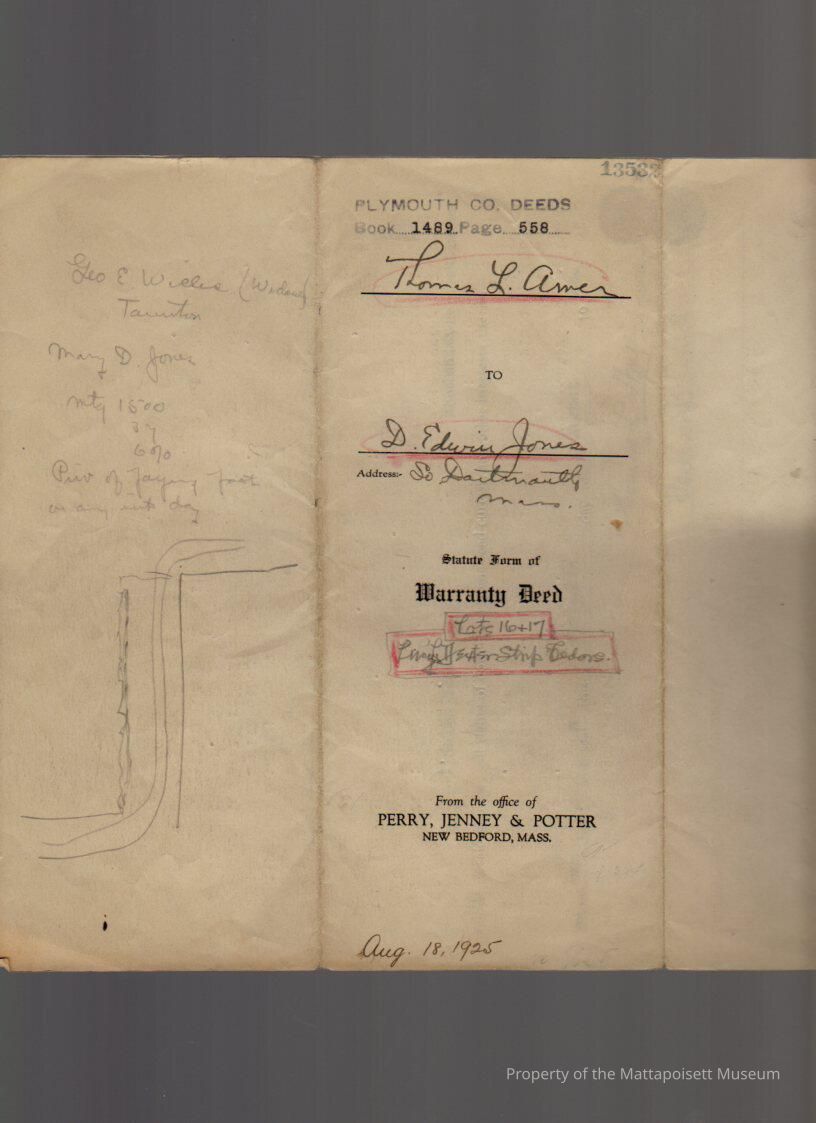 Geo E.
Taunton
Mary D. Jones
mtg 1500
3 y
6 %
Priv of paying part
on any int day
13583
PLYMOUTH CO. DEEDS
Book 1489 Page 558
Thomas L. Amer
TO
D. Edwin Jones
Address:- So Dartmouth
Mass.
Statute Form of
Warranty Deed
Lots 16+17
Strip
From the office of
PERRY, JENNEY & POTTER
NEW BEDFORD, MASS.
Aug. 18, 1925
Property of the Mattapoisett Museum